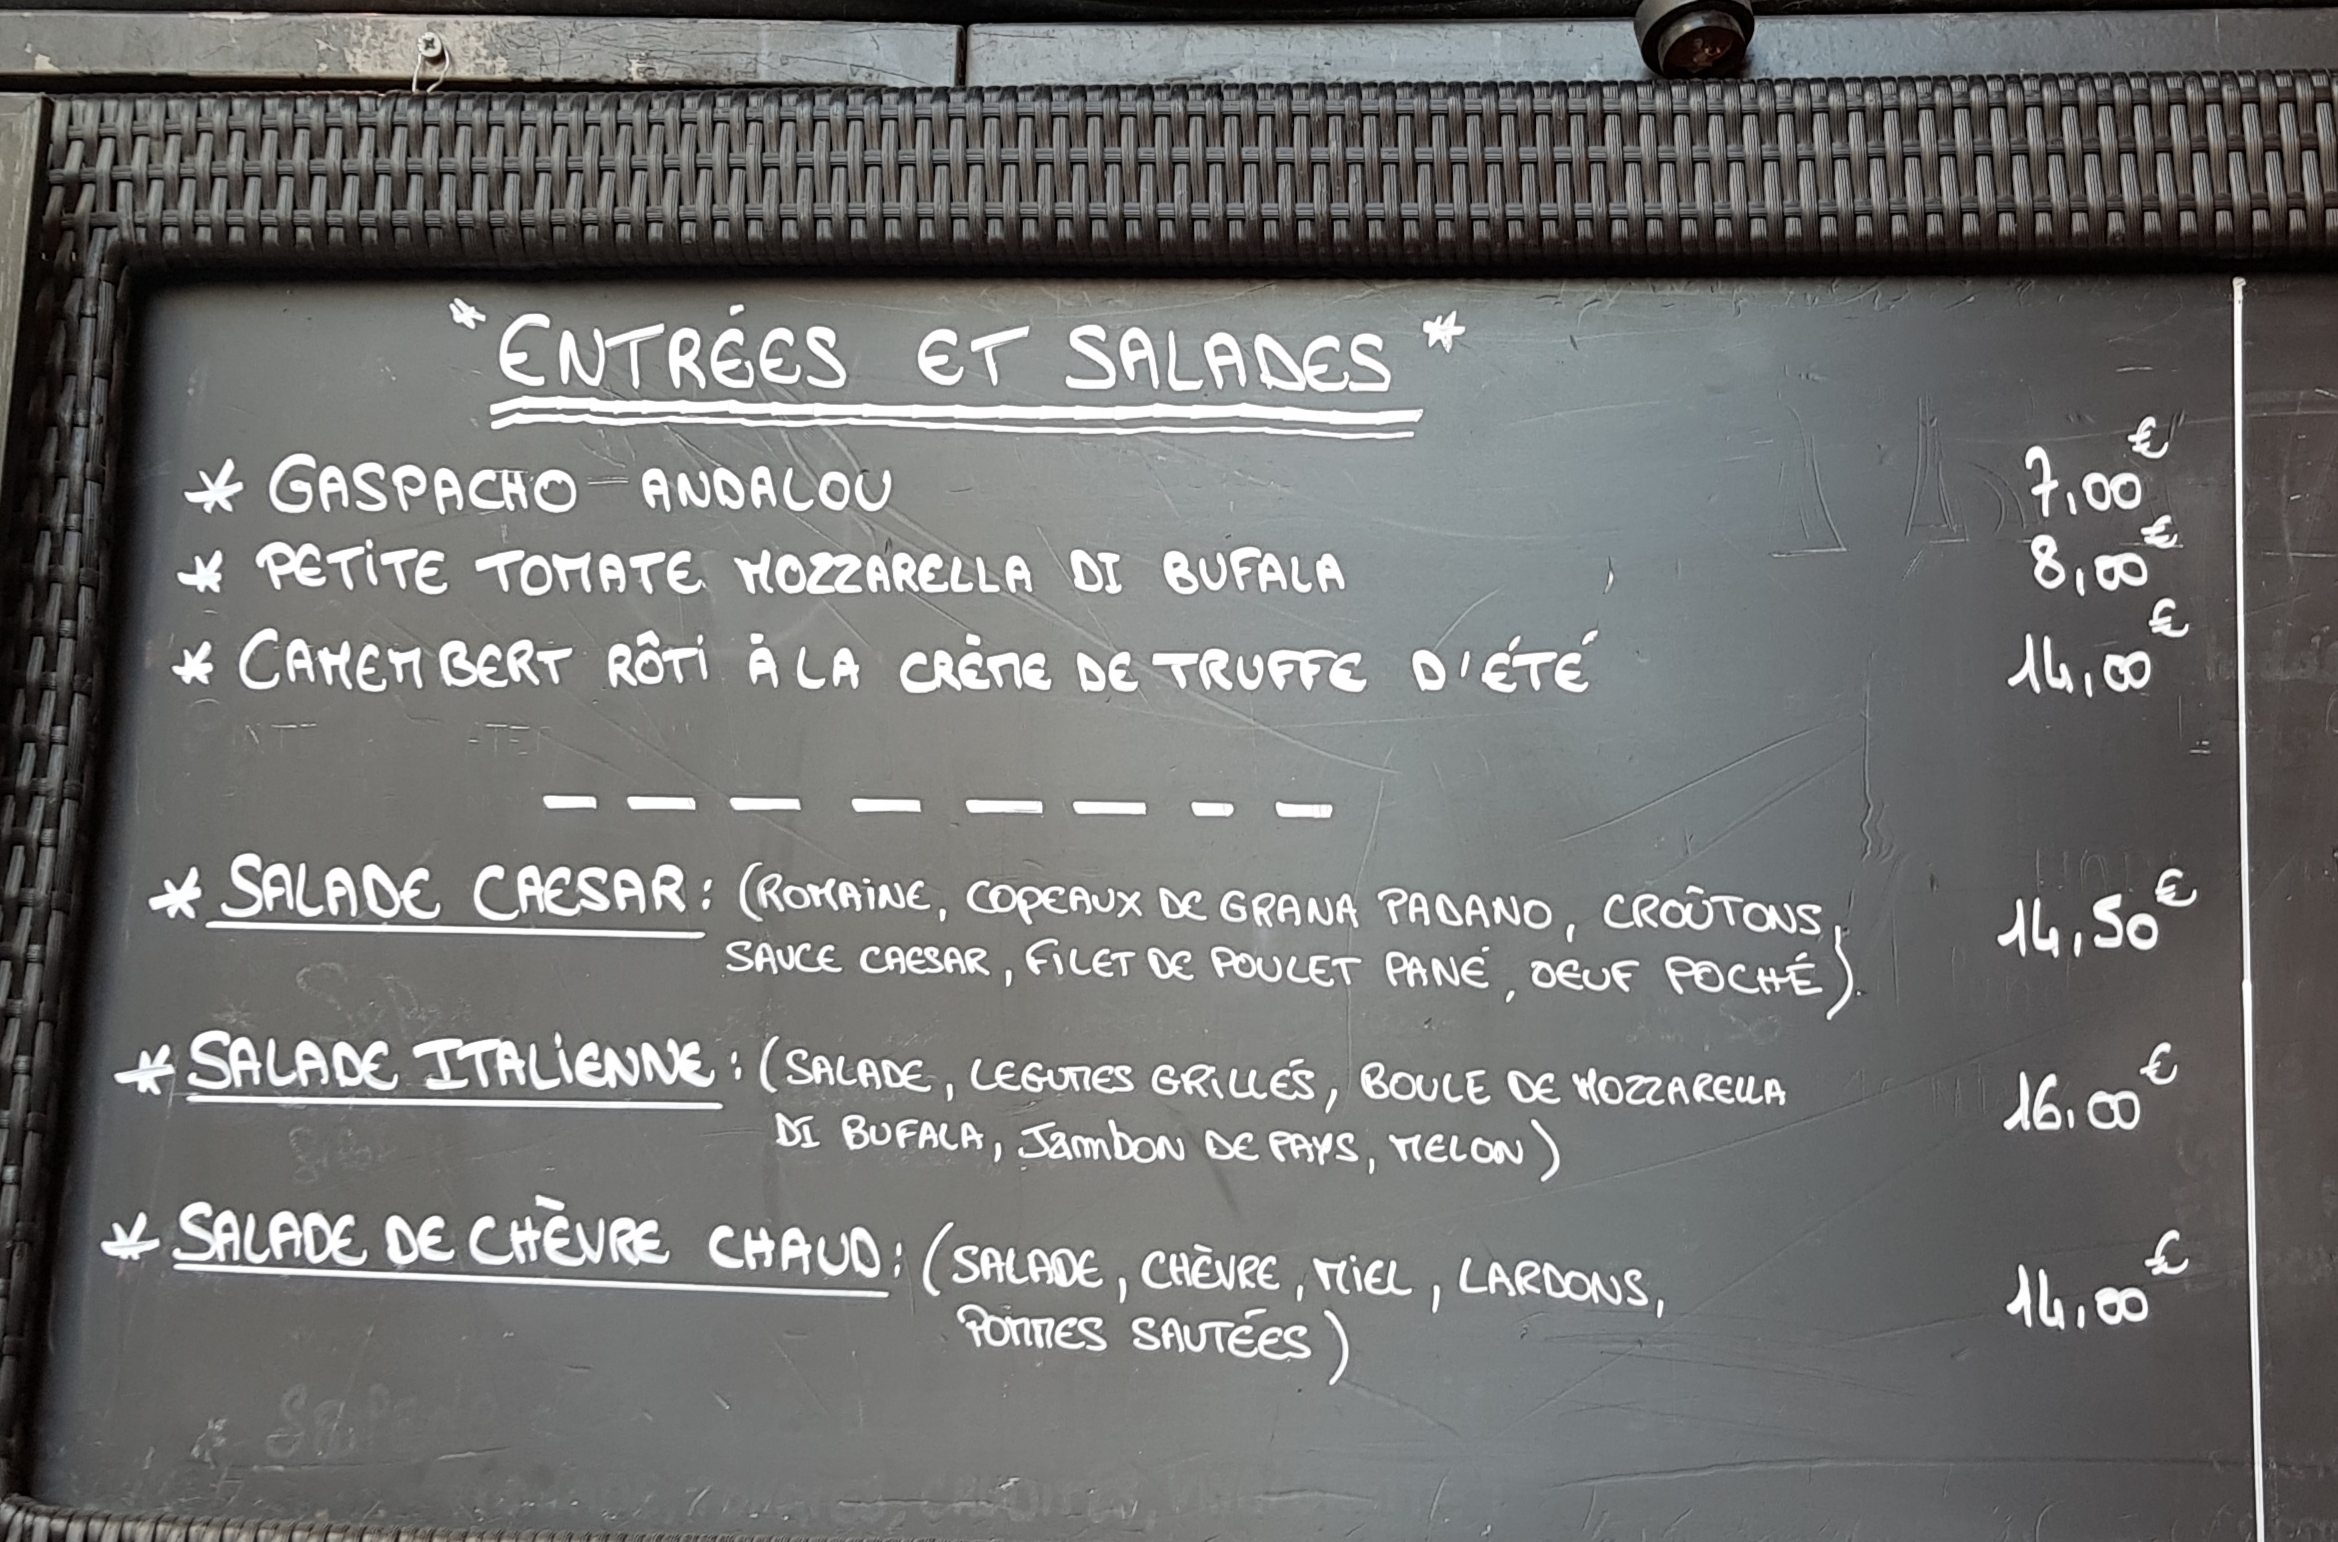 * ENTRÉES ET SALADES *
* GASPACHO ANDALOU 7,00€
* PETITE TOMATE MOZZARELLA DI BUFALA 8,00€
* CAMEMBERT RÔTI À LA CRÈME DE TRUFFE D'ÉTÉ 14,00€
* SALADE CAESAR : (ROMAINE, COPEAUX DE GRANA PADANO, CROÛTONS, 14,50€
SAUCE CAESAR, FILET DE POULET PANÉ, OEUF POCHÉ).
* SALADE ITALIENNE : (SALADE, LEGUMES GRILLÉS, BOULE DE MOZZARELLA 16,00€
DI BUFALA, JAMBON DE PAYS, MELON)
* SALADE DE CHÈVRE CHAUD : (SALADE, CHÈVRE, MIEL, LARDONS, 14,00€
POMMES SAUTÉES)